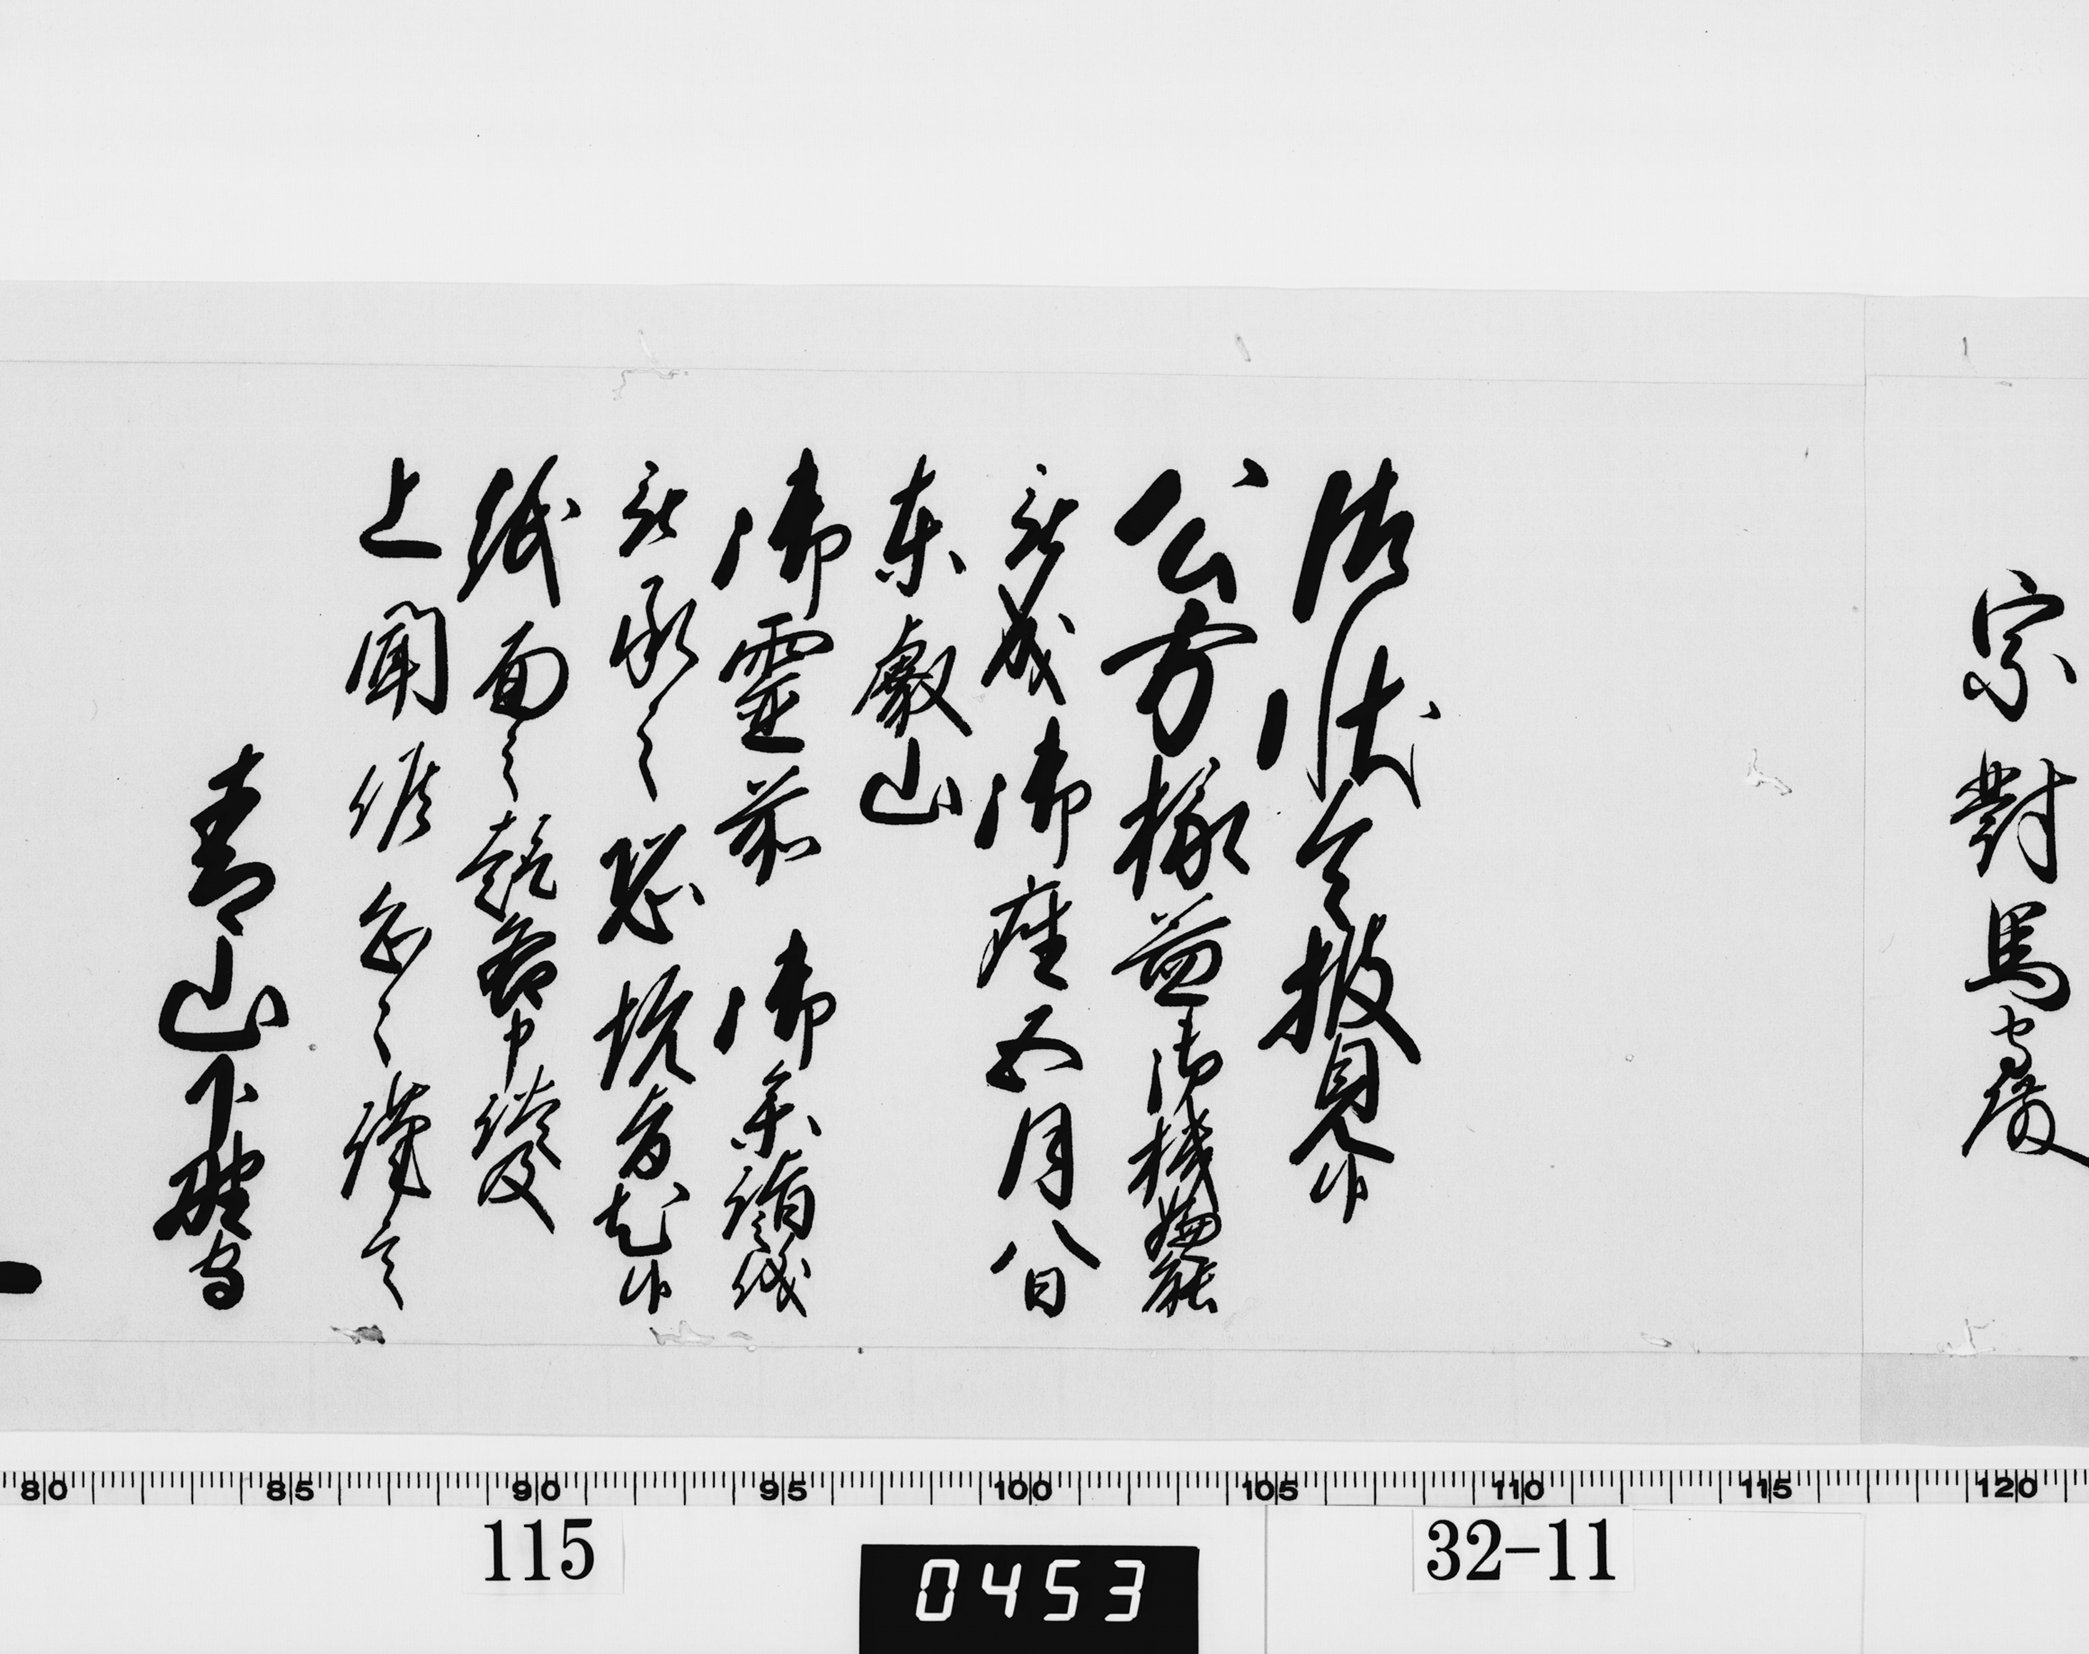 宗對馬守殿
御状令披見候
公方様益御機嫌能
被成御座五月八日
東叡山
御霊前江御参詣儀
被承之恐悦旨尤候
紙面之趣各申談及
上聞候恐々謹言
青山下野守
80 85 90 95 100 105 110 115 120
115
0453
32-11